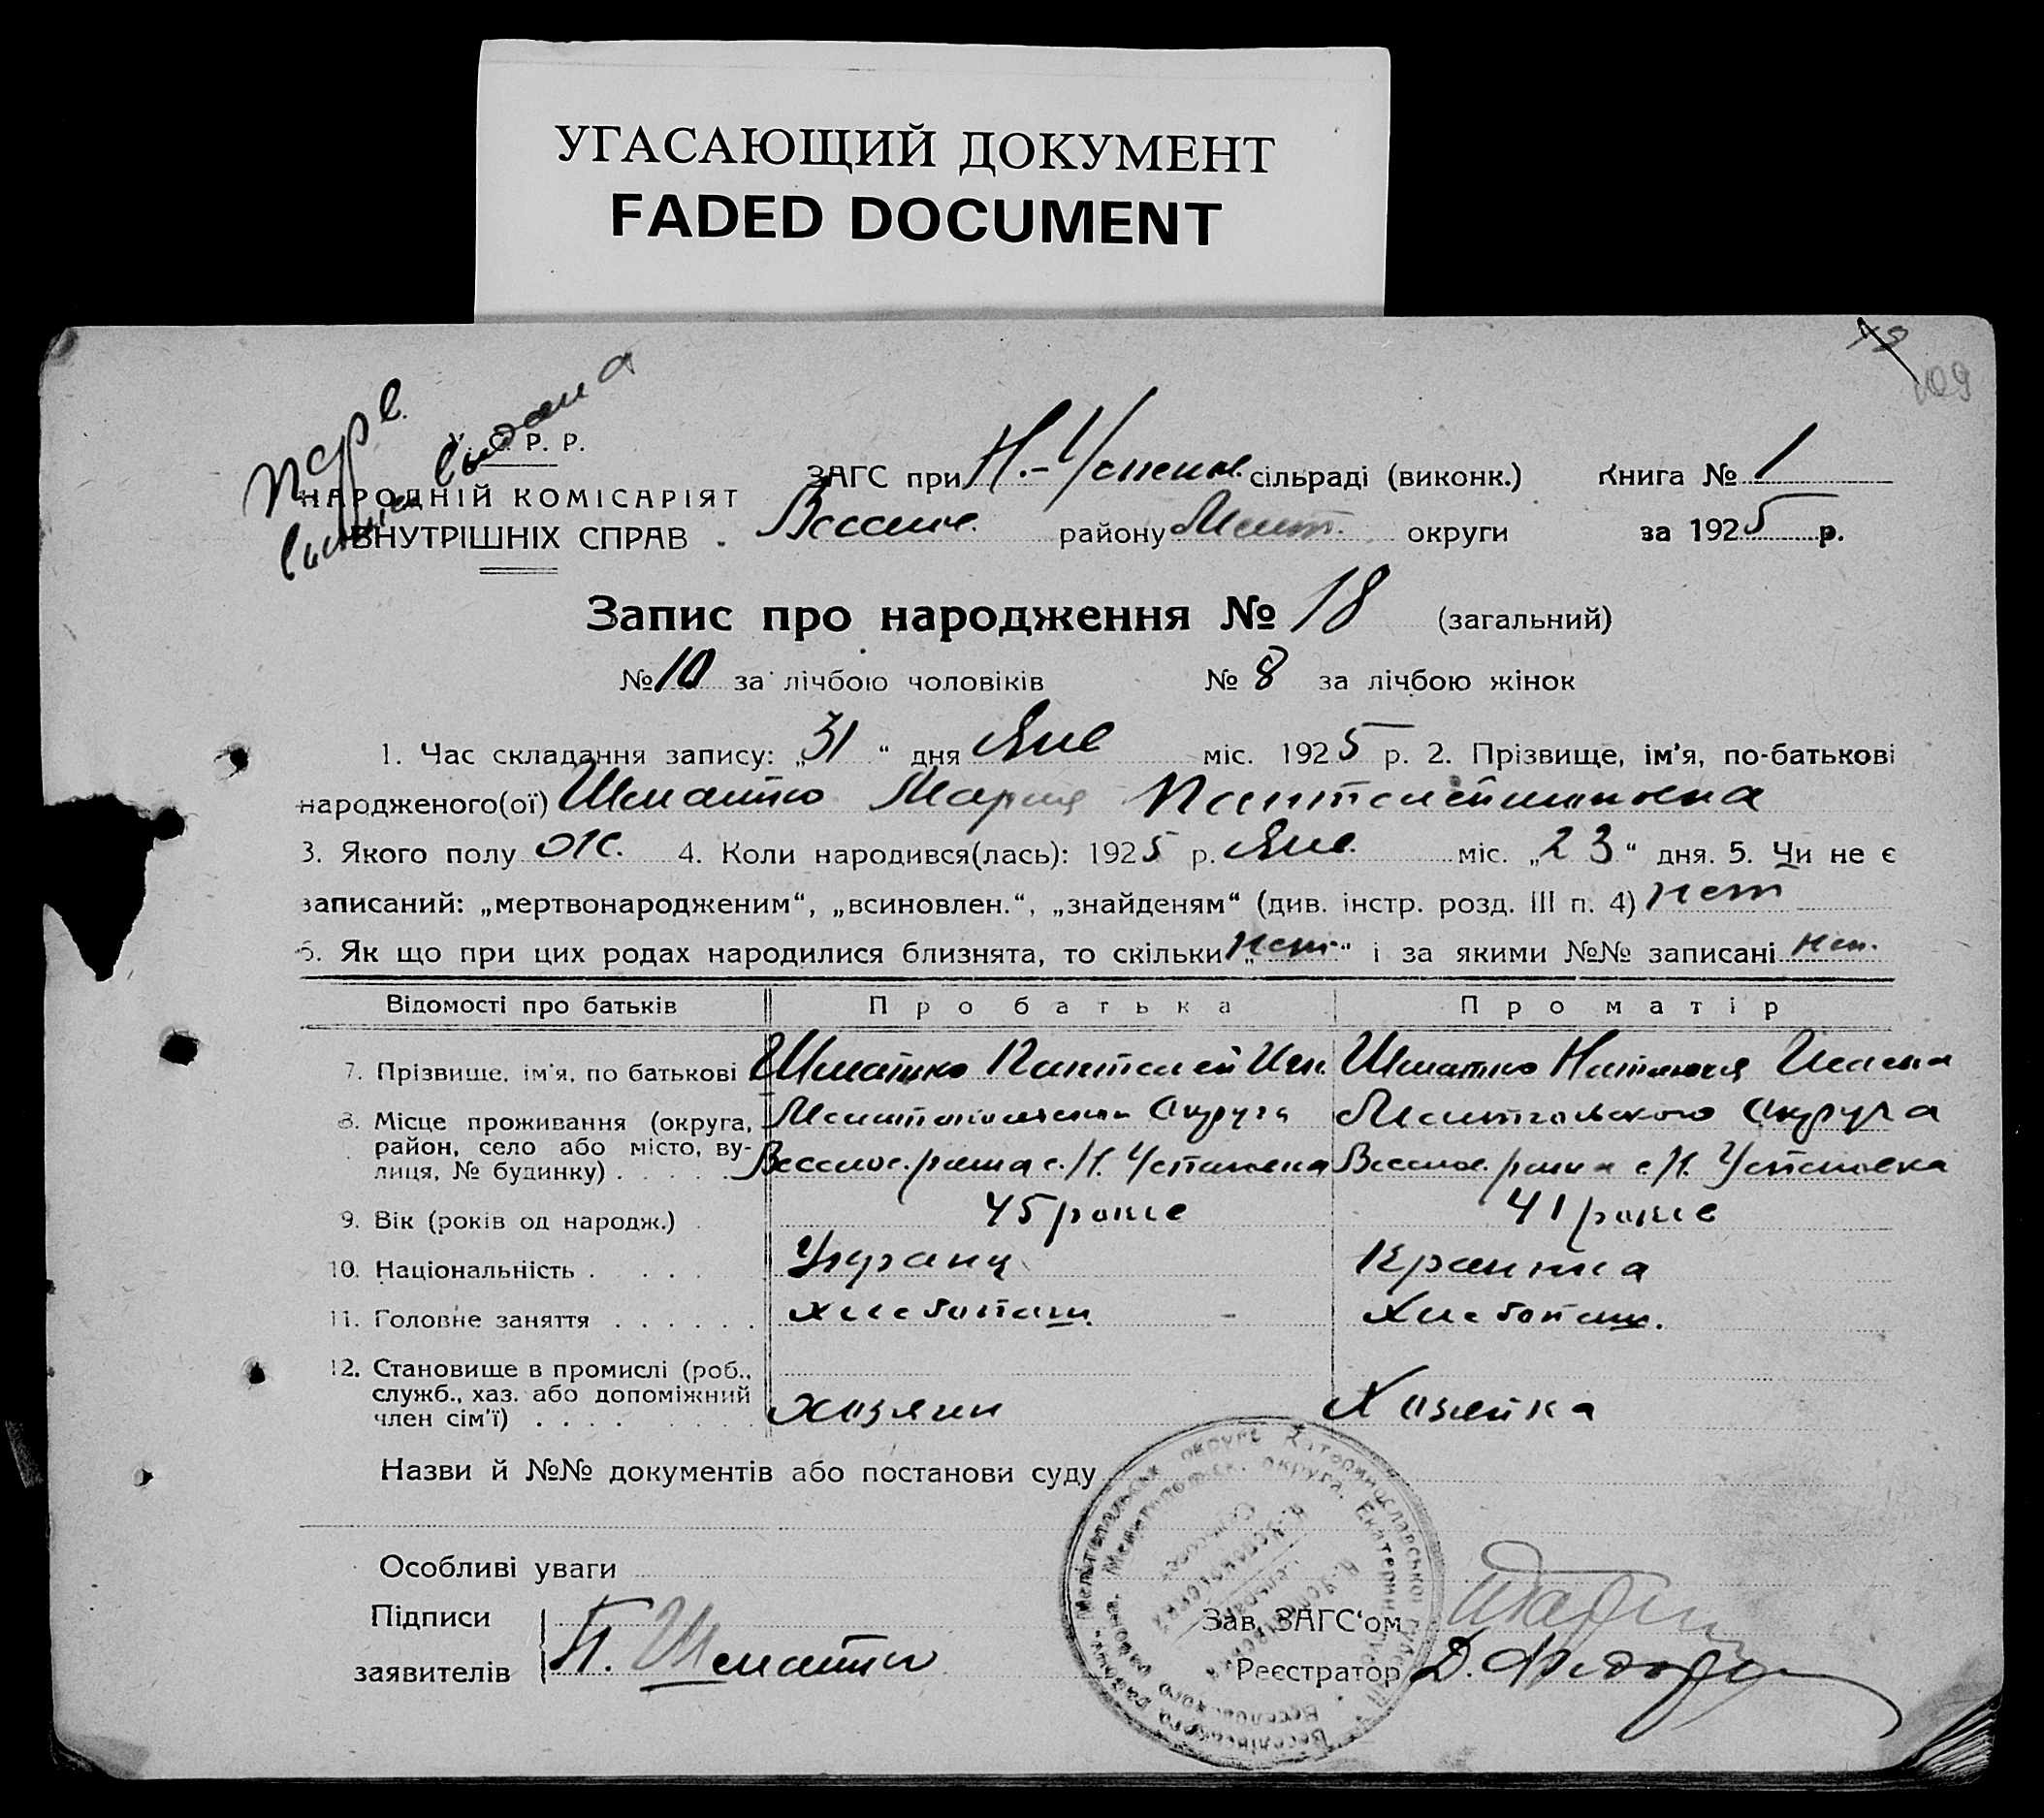 УГАСАЮЩИЙ ДОКУМЕНТ
FADED DOCUMENT
109
У. С. Р. Р.
НАРОДНІЙ КОМІСАРІЯТ
ВНУТРІШНІХ СПРАВ
ЗАГС при Н.-Успенов. сільраді (виконк.) Книга № 1
Веселов. району Мелит. округи за 1925 р.
Запис про народження № 18 (загальний)
№ 10 за лічбою чоловіків № 8 за лічбою жінок
1. Час складання запису: „31“ дня Янв міс. 1925 р. 2. Прізвище, ім'я, по-батькові
народженого(ої) Шматко Мария Пантелеймоновна
3. Якого полу Ж. 4. Коли народився(лась): 1925 р. Янв. міс. „23“ дня. 5. Чи не є
записаний: „мертвонародженим“, „всиновлен.“, „знайденям“ (див. інстр. розд. III п. 4) нет
6. Як що при цих родах народилися близнята, то скільки „нет“ і за якими №№ записані нет.
Відомості про батьків Про батька Про матір
7. Прізвище, ім'я, по батькові Шматко Пантелей Шматко
8. Місце проживання (округа, Округа Округа
район, село або місто, ву- Веселов. района с. Н. Успеновка Веселов. района с. Н. Успеновка
лиця, № будинку) . . . . .
9. Вік (років од народж.) . 45 років 41 років
10. Національність . . . . Украинц Краинка
11. Головне заняття . . . . . . хлебопаш. Хлебопаш.
12. Становище в промислі (роб.,
служб., хаз. або допоміжний
член сім'ї) . . . . хозяин Хозяйка
Назви й №№ документів або постанови суду
Особливі уваги
Підписи
заявителів П. Шматко
Зав. ЗАГС'ом
Реєстратор Д.